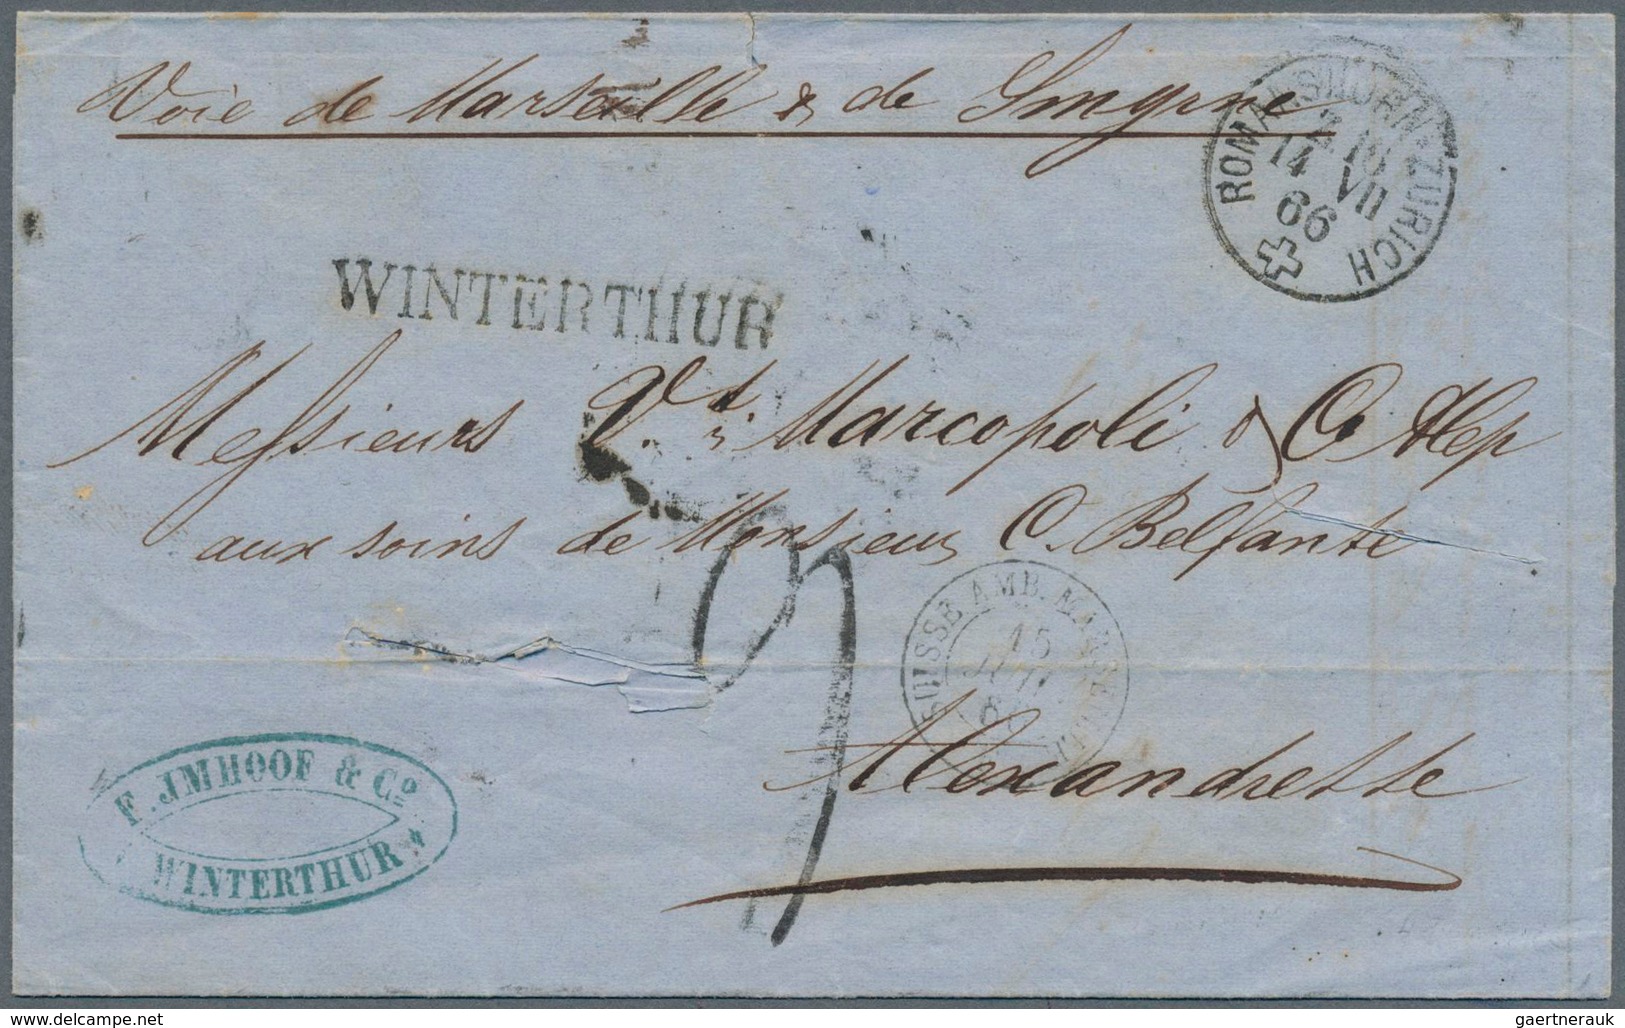 Voie de Marseille & de Smyrne
ROMANSHORN-ZÜRICH
14 VII
66
WINTERTHUR
Messieurs Vt. Marcopoli & Co Alep
aux soins de Monsieur C. Belfante
9
SUISSE AMB. MARSEILLE
15
JUIL
Alexandrette
F. JMHOOF & Co.
WINTERTHUR
gaertnerauk